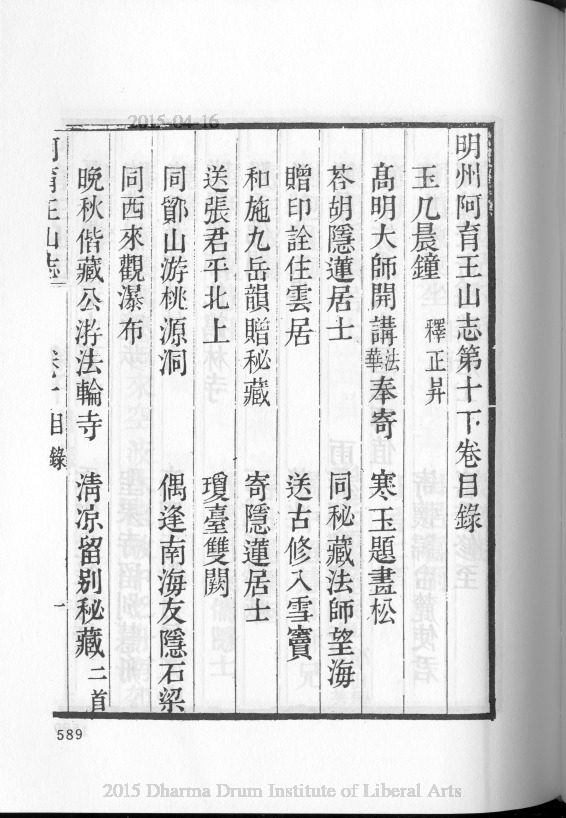 2015-04-16
明州阿育王山志第十下卷目錄
玉几晨鐘 釋正昇
髙明大師開講法華奉寄 寒玉題畫松
荅胡隱蓮居士 同秘藏法師望海
贈印詮住雲居 送古修入雪竇
和施九岳韻贈秘藏 寄隱蓮居士
送張君平北上 瓊臺雙闕
同鄮山游桃源洞 偶逢南海友隱石梁
同西來觀瀑布
晚秋偕藏公游法輪寺 清凉留别秘藏二首
阿育王山志 卷十 目錄 一
589
2015 Dharma Drum Institute of Liberal Arts